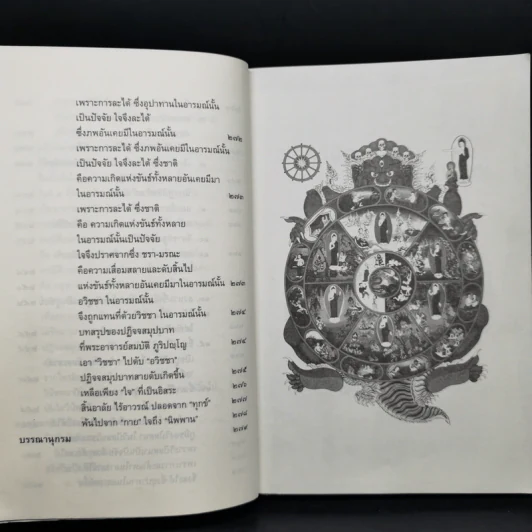 เพราะการละได้ ซึ่งอุปาทานในอารมณ์นั้น
เป็นปัจจัย ใจจึงละได้
ซึ่งภพอันเคยมีในอารมณ์นั้น ๒๗๒
เพราะการละได้ ซึ่งภพอันเคยมีในอารมณ์นั้น
เป็นปัจจัย ใจจึงละได้ ซึ่งชาติ
คือความเกิดแห่งขันธ์ทั้งหลายอันเคยมีมา
ในอารมณ์นั้น ๒๗๓
เพราะการละได้ ซึ่งชาติ
คือ ความเกิดแห่งขันธ์ทั้งหลาย
ในอารมณ์นั้นเป็นปัจจัย
ใจจึงปราศจากซึ่ง ชรา-มรณะ
คือความเสื่อมสลายและดับสิ้นไป
แห่งขันธ์ทั้งหลายอันเคยมีมาในอารมณ์นั้น ๒๗๓
อวิชชา ในอารมณ์นั้น
จึงถูกแทนที่ด้วยวิชชา ในอารมณ์นั้น ๒๗๔
บทสรุปของปฏิจจสมุปบาท
ที่พระอาจารย์สมบัติ ภูริปญฺโญ
เอา "วิชชา" ไปดับ "อวิชชา" ๒๗๕
ปฏิจจสมุปบาทสายดับเกิดขึ้น
เหลือเพียง "ใจ" ที่เป็นอิสระ
สิ้นอาลัย ไร้อาวรณ์ ปลอดจาก "ทุกข์" ๒๗๕
พ้นไปจาก "กาย" ใจถึง "นิพพาน" ๒๗๗
บรรณานุกรม ๒๗๙